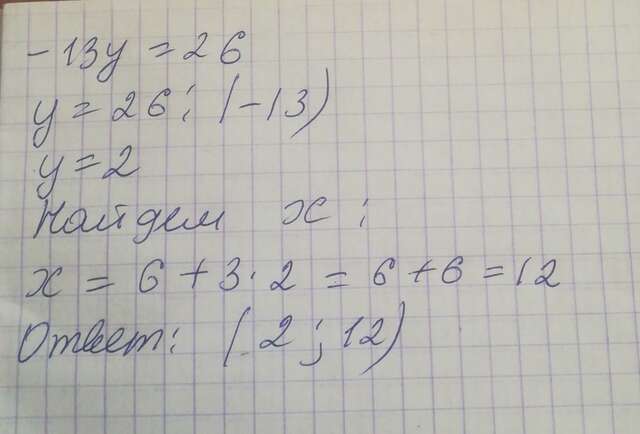 -13y = 26
y = 26 : (-13)
y = 2
Найдем x :
x = 6 + 3 · 2 = 6 + 6 = 12
Ответ: (2 ; 12)